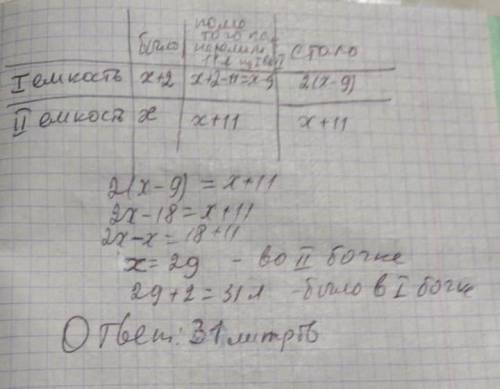 было | после того как перелили 11л из I во II | стало
I емкость | x+2 | x+2-11=x-9 | 2(x-9)
II емкость | x | x+11 | x+11
2(x-9)=x+11
2x-18=x+11
2x-x=18+11
x=29 - во II бочке
29+2=31л - было в I бочке
Ответ: 31 литров